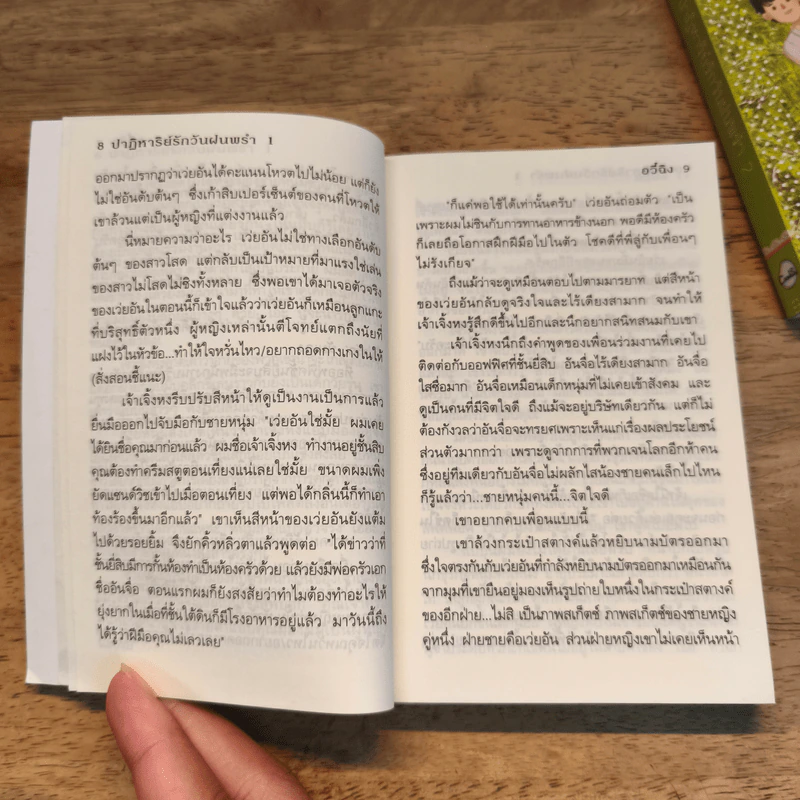 8 ปาฏิหาริย์รักวันฝนพรำ 1
ออกมาปรากฏว่าเว่ยอันได้คะแนนโหวตไปไม่น้อย แต่ก็ยัง
ไม่ใช่อันดับต้นๆ ซึ่งเก้าสิบเปอร์เซ็นต์ของคนที่โหวตให้
เขาล้วนแต่เป็นผู้หญิงที่แต่งงานแล้ว
นี่หมายความว่าอะไร เว่ยอันไม่ใช่ทางเลือกอันดับ
ต้นๆ ของสาวโสด แต่กลับเป็นเป้าหมายที่มาแรงใช่เล่น
ของสาวไม่โสดไม่ซิงทั้งหลาย ซึ่งพอเขาได้มาเจอตัวจริง
ของเว่ยอันในตอนนี้ก็เข้าใจแล้วว่าเว่ยอันก็เหมือนลูกแกะ
ที่บริสุทธิ์ตัวหนึ่ง ผู้หญิงเหล่านั้นตีโจทย์แตกถึงนัยที่
แฝงไว้ในหัวข้อ...ทำให้ใจหวั่นไหว/อยากถอดกางเกงในให้
(สั่งสอนชี้แนะ)
เจ้าเจิ้งหงรีบปรับสีหน้าให้ดูเป็นงานเป็นการแล้ว
ยื่นมือออกไปจับมือกับชายหนุ่ม "เว่ยอันใช่มั้ย ผมเคย
ได้ยินชื่อคุณมาก่อนแล้ว ผมชื่อเจ้าเจิ้งหง ทำงานอยู่ชั้นสิบ
คุณต้องทำครีมสตูตอนเที่ยงแน่เลยใช่มั้ย ขนาดผมเพิ่ง
ยัดแซนด์วิชเข้าไปเมื่อตอนเที่ยง แต่พอได้กลิ่นนี้ก็ทำเอา
ท้องร้องขึ้นมาอีกแล้ว" เขาเห็นสีหน้าของเว่ยอันยังแต้ม
ไปด้วยรอยยิ้ม จึงยักคิ้วหลิ่วตาแล้วพูดต่อ "ได้ข่าวว่าที่
ชั้นยี่สิบมีการกั้นห้องทำเป็นห้องครัวด้วย แล้วยังมีพ่อครัวเอก
ชื่ออันจื่อ ตอนแรกผมก็ยังสงสัยว่าทำไมต้องทำอะไรให้
ยุ่งยากในเมื่อที่ชั้นใต้ดินก็มีโรงอาหารอยู่แล้ว มาวันนี้ถึง
ได้รู้ว่าฝีมือคุณไม่เลวเลย"
อวี๋ฉิง 9
"ก็แค่พอใช้ได้เท่านั้นครับ" เว่ยอันถ่อมตัว "เป็น
เพราะผมไม่ชินกับการทานอาหารข้างนอก พอดีมีห้องครัว
ก็เลยถือโอกาสฝึกฝีมือไปในตัว โชคดีที่พี่สู่กับเพื่อนๆ
ไม่รังเกียจ"
ถึงแม้ว่าจะดูเหมือนตอบไปตามมารยาท แต่สีหน้า
ของเว่ยอันกลับดูจริงใจและไร้เดียงสามาก จนทำให้
เจ้าเจิ้งหงรู้สึกดีขึ้นไปอีกและนึกอยากสนิทสนมกับเขา
เจ้าเจิ้งหงนึกถึงคำพูดของเพื่อนร่วมงานที่เคยไป
ติดต่อกับออฟฟิศที่ชั้นยี่สิบ อันจื่อไร้เดียงสามาก อันจื่อ
ใสซื่อมาก อันจื่อเหมือนเด็กหนุ่มที่ไม่เคยเข้าสังคม และ
ดูเป็นคนที่มีจิตใจดี ถึงแม้จะอยู่บริษัทเดียวกัน แต่ก็ไม่
ต้องกังวลว่าอันจื่อจะทรยศเพราะเห็นแก่เรื่องผลประโยชน์
ส่วนตัวมากกว่า เพราะดูจากการที่พวกเจนโลกอีกห้าคน
ซึ่งอยู่ทีมเดียวกับอันจื่อไม่ผลักไสน้องชายคนเล็กไปไหน
ก็รู้แล้วว่า...ชายหนุ่มคนนี้...จิตใจดี
เขาอยากคบเพื่อนแบบนี้
เขาล้วงกระเป๋าสตางค์แล้วหยิบนามบัตรออกมา
ซึ่งใจตรงกันกับเว่ยอันที่กำลังหยิบนามบัตรออกมาเหมือนกัน
จากมุมที่เขายืนอยู่มองเห็นรูปถ่ายใบหนึ่งในกระเป๋าสตางค์
ของอีกฝ่าย...ไม่สิ เป็นภาพสเก็ตซ์ ภาพสเก็ตซ์ของชายหญิง
คู่หนึ่ง ฝ่ายชายคือเว่ยอัน ส่วนฝ่ายหญิงเขาไม่เคยเห็นหน้า